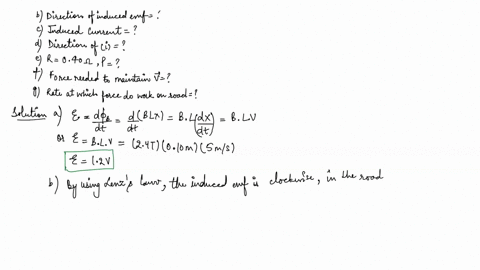 b) Direction of induced emf = ?
c) Induced Current = ?
d) Direction of (i) = ?
e) R = 0.40 Ω, P = ?
f) Force needed to maintain V⃗ = ?
g) Rate at which force do work on road = ?
Solution a) ε = dϕB/dt = d/dt (BLx) = B.L (dx/dt) = B.L.V
or ε = B.L.V = (2.4T) (0.10m) (5 m/s)
ε = 1.2V
b) By using Lenz's law, the induced emf is clockwise, in the road